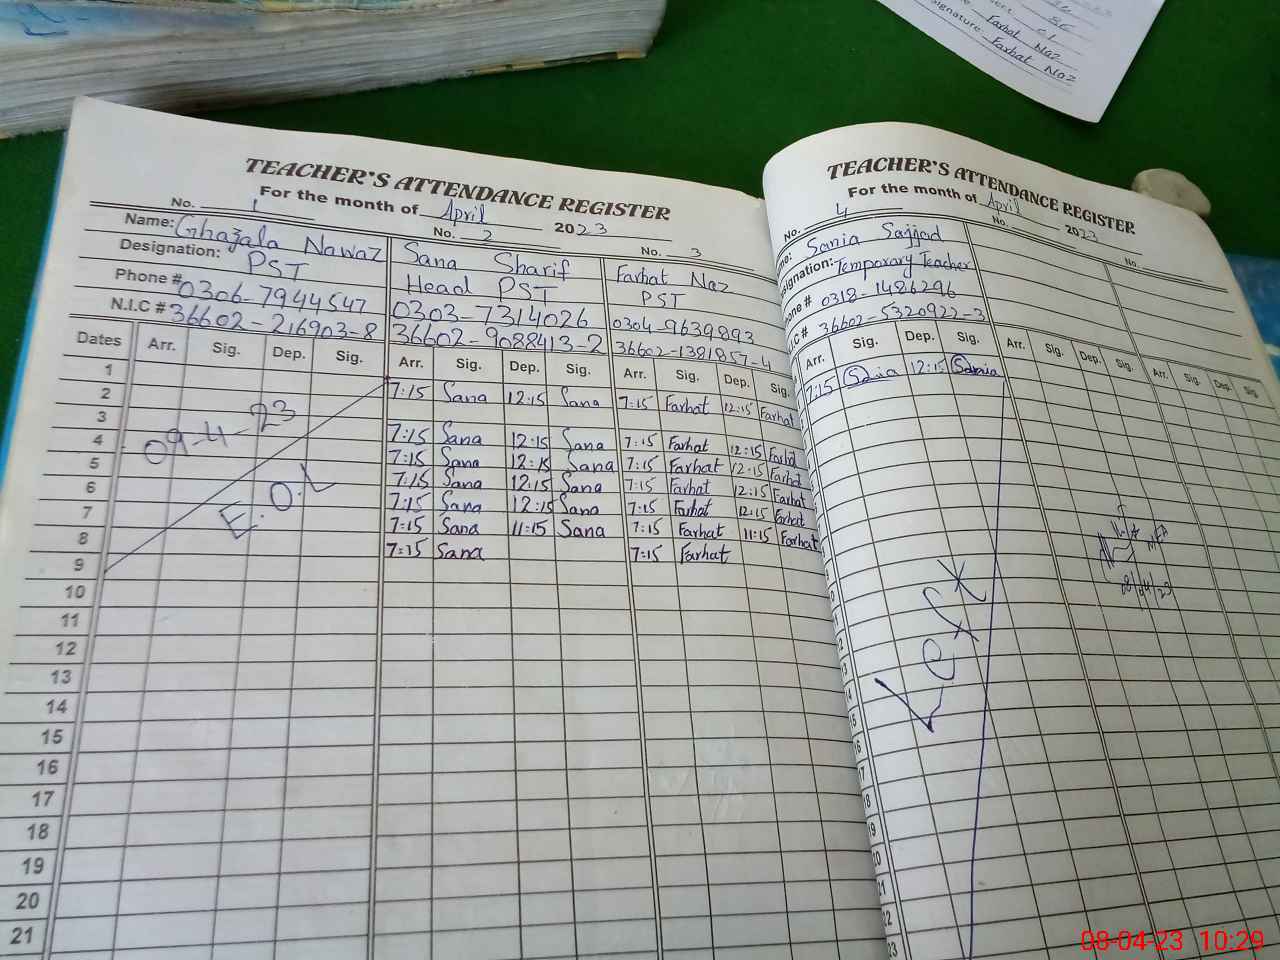 Farhat Naz
Signature Farhat Naz
TEACHER'S ATTENDANCE REGISTER
For the month of April 2023
No. 1 No. 2 No. 3
Name: Ghazala Nawaz Sana Sharif Farhat Naz
Designation: PST Head PST PST
Phone # 0306-7944547 0303-7314026 0304-9639893
N.I.C # 36602-216903-8 36602-9088413-2 36602-1381857-4
Dates Arr. Sig. Dep. Sig. Arr. Sig. Dep. Sig. Arr. Sig. Dep. Sig.
1 7:15 Sana 12:15 Sana 7:15 Farhat 12:15 Farhat
2
3 7:15 Sana 12:15 Sana 7:15 Farhat 12:15 Farhat
4 7:15 Sana 12:15 Sana 7:15 Farhat 12:15 Farhat
5 7:15 Sana 12:15 Sana 7:15 Farhat 12:15 Farhat
6 7:15 Sana 12:15 Sana 7:15 Farhat 12:15 Farhat
7 7:15 Sana 11:15 Sana 7:15 Farhat 11:15 Farhat
8 7:15 Sana 7:15 Farhat
9
10
11
12
13
14
15
16
17
18
19
20
21
09-4-23
E.O.L
TEACHER'S ATTENDANCE REGISTER
For the month of April 2023
No. 4 No. No.
Sania Sajjad
Designation: Temporary Teacher
Phone # 0318-1486296
N.I.C # 36602-5320922-3
Arr. Sig. Dep. Sig. Arr. Sig. Dep. Sig. Arr. Sig. Dep. Sig.
7:15 Sania 12:15 Sania
Left
08/04/23
08-04-23 10:29